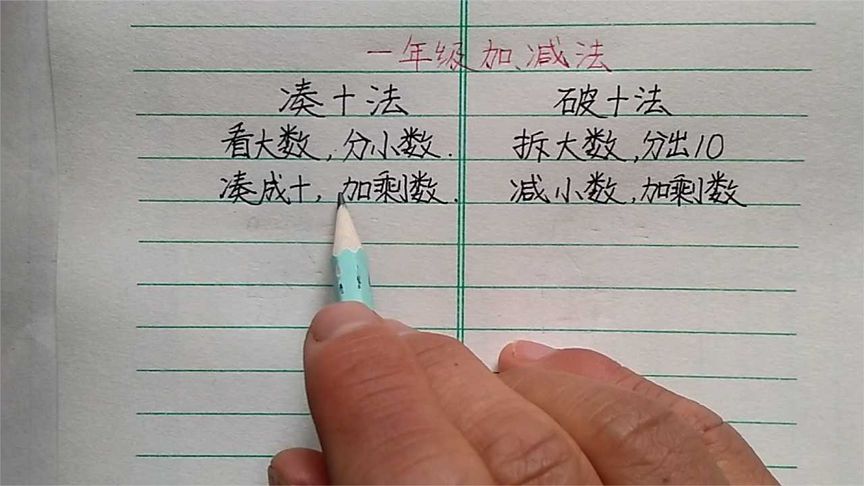 一年级加、减法
凑十法
看大数，分小数.
凑成十，加剩数.
破十法
拆大数，分出10
减小数，加剩数